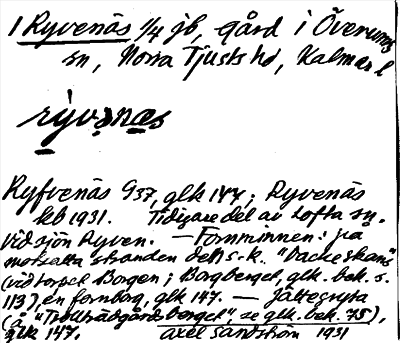 1 Ryvenäs 1/4 jb, gård i Överums
sn, Norra Tjusts hd, Kalmar l
rȳvənas
Ryfvenäs G37, glk 147; Ryvenäs
kb 1931. Tidigare del av Lofta sn.
Vid sjön Ryven. — Fornminnen: på
motsatta stranden den s.k. "Dackeskans"
(vid torpet Borgen; Borgberget, glk. bek. s.
113), en fornborg, glk 147. — Jättegryta
(på "Trollträdgårdsberget", se glk. bek. 75),
glk 147. Axel Sandström 1931